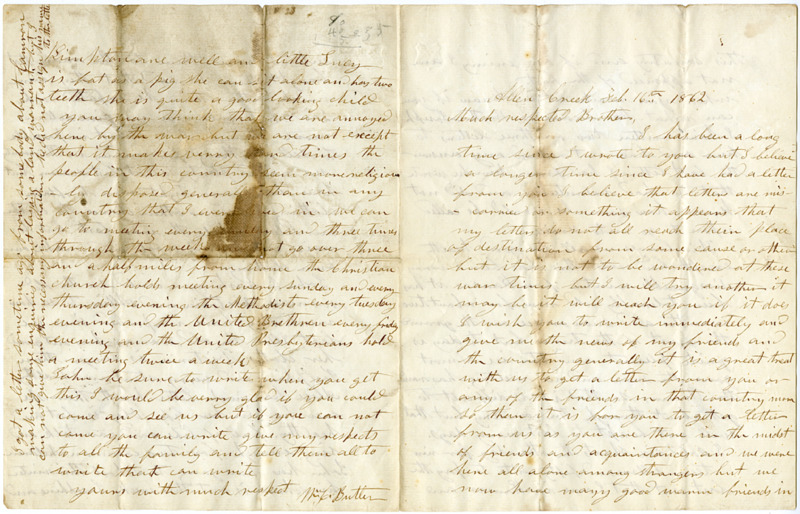 Allen Creek Feb. 16th 1862
Much respected Brother,
I has been a long
time since I wrote to you but I believe
a longer time since I have had a letter
from you I believe that letters are mis-
carried or something it appears that
my letters do not all reach their place
of destination from some cause or other
but it is not to be wondered at these
war times but I will try another it
may be it will reach you if it does
I wish you to write immediately and
give me the news of my friends and
the country generally it is a great treat
with us to get a letter from you or
any of the friends in that country more
so then it is for you to get a letter
from us as you are there in the midst
of friends and acquaintances and we were
here all alone among strangers but we
now have many good warm friends in
Kimpton are well and little Lucy
is fat as a pig she can set alone and has two
teeth she is quite a good looking child
you may think that we are annoyed
here by the war but we are not except
that it makes verry hard times the
people in this country seem more religiou
-ly disposed generally than in any
country that I ever lived in we can
go to meeting every sunday and three times
through the week and not go over three
and a half miles from home the Christian
church holds meeting every sunday and every
thursday evening the Methodists every tuesday
evening and the United Brethren every friday
evening and the United Presbyterians hold
a meeting twice a week
John be sure to write when you get
this I would be verry glad if you could
come and see us but if you can not
come you can write give my respects
to all the family and tell them all to
write that can write
yours with much respect Wm C. Butler
I got a letter sometime ago from some body about Camron
making some enquiries about leasing a land warrant but I
can not the necessary information did not sign his name
to the letter